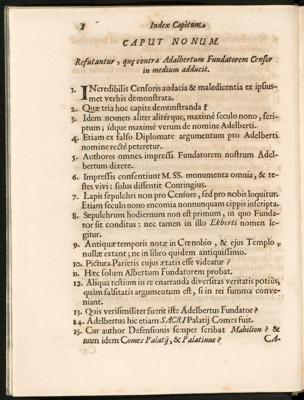 Index Capitum.
CAPUT NONUM.
Refutantur, quę contra Adalbertum Fundatorem Censor
in medium adducit.
1. INcredibilis Censoris audacia & maledicentia ex ipsius-
met verbis demonstrata.
2. Quæ tria hoc capite demonstranda?
3. Idem nomen aliter alitérque, maximè seculo nono, scri-
ptum; idque maximè verum de nomine Adelberti.
4. Etiam ex falso Diplomate argumentum pro Adelberti
nomine rectè peteretur.
5. Authores omnes impressi Fundatorem nostrum Adel-
bertum dixere.
6. Impressis consentiunt M. SS. monumenta omnia, & te-
stes vivi: solus dissentit Conringius.
7. Lapis sepulchri non pro Censore, sed pro nobis loquitur.
Etiam seculo nono encomia nonnunquam cippis inscripta.
8. Sepulchrum hodiernum non est primum, in quo Funda-
tor sit conditus: nec tamen in illo Ekberti nomen le-
gitur.
9. Antiquæ temporis notæ in Cœnobio, & ejus Templo,
nullæ extant; ne in libro quidem antiquissimo.
10. Pictura Parietis cujus ætatis esse videatur?
11. Hæc solum Albertum Fundatorem probat.
12. Aliqua testium in re enarranda diversitas veritatis potiùs,
quàm falsitatis argumentum est, si in rei summa conve-
niant.
13. Quis verisimiliter fuerit iste Adelbertus Fundator?
14. Adelbertus hic etiam SACRI Palatij Comes fuit.
15. Cur author Defensionis semper scribat Mabilion? &
num idem Comes Palatij, & Palatinus?
CA-